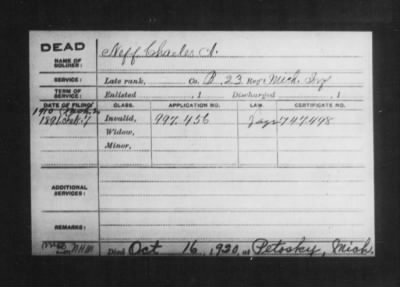 DEAD
NAME OF SOLDIER: Neff Charles A.
SERVICE: Late rank, Co. B. 23 Reg't Mich. Inf
TERM OF SERVICE: Enlisted , 1 Discharged , 1
DATE OF FILING CLASS. APPLICATION NO. LAW. CERTIFICATE NO.
1910
1891 Feb. 7 Invalid, 997.456 747498
Widow,
Minor,
ADDITIONAL SERVICES:
REMARKS:
Died Oct 16, 1920, at Petosky, Mich.